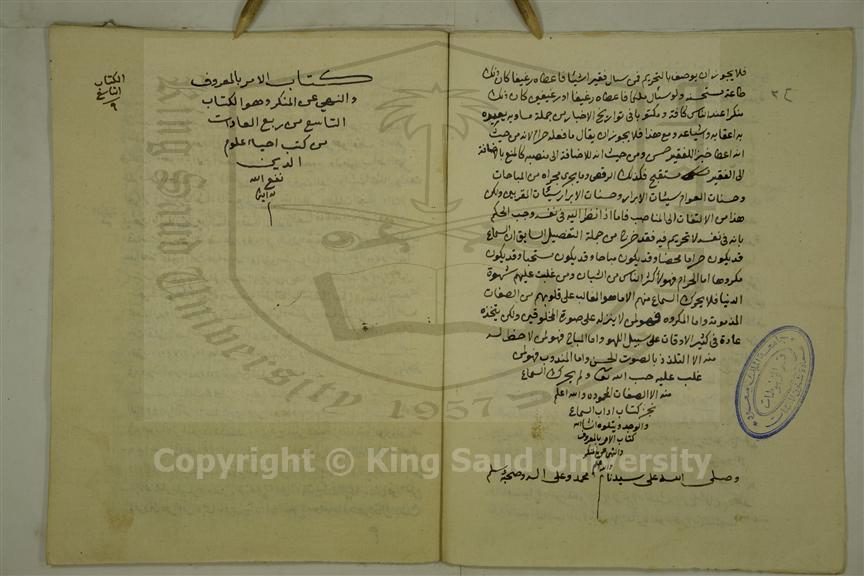 فلا يجوز ان يوصف بالتحريم فمن سأل فقيرا شيئا فاعطاه رغيفا كان ذلك
طاعة مستحسنة ولو سئل ملك فاعطاه رغيفا او رغيفين كان ذلك
منكرا عند الناس كافة ومكتوبا في تواريخ الاخبار من جملة مساويه يعير به
به اعقابه واشياعه ومع هذا فلا يجوز ان يقال ما فعله حرام لانه من حيث
انه اعطا خبزا للفقير حسن ومن حيث انه للاضافة الى منصبه كالمنع بالاضافة
الى الفقير مستقبح فكذلك الرقص وما يجري مجراه من المباحات
وحسنات العوام سيئات الابرار وحسنات الابرار سيئات المقربين ولكن
هذا من الالتفات الى المناصب فاما اذا نظر اليه في نفسه وجب الحكم
بانه في نفسه لا تحريم فيه فقد خرج من جملة التفصيل السابق ان السماع
قد يكون حراما محضا وقد يكون مباحا وقد يكون مستحبا وقد يكون
مكروها اما الحرام فهو لاكثر الناس من الشبان ومن غلبت عليهم شهوة
الدنيا فلا يحرك السماع منهم الا ما هو الغالب على قلوبهم من الصفات
المذمومة واما المكروه فهو لمن لا ينزله على صورة المخلوقين ولكن يتخذه
عادة في كثير الاوقات على سبيل اللهو واما المباح فهو لمن لا حظ له
منه الا التلذذ بالصوت الحسن واما المندوب فهو لمن
غلب عليه حب الله تعا ولم يحرك السماع
منه الا الصفات المحموده والله اعلم
نجز كتاب اداب السماع
والوجد ويتلوه انشاالله
كتاب الامر بالمعروف
والنهي عن المنكر
والله اعلم
وصلى الله على سيدنا محمد وعلى اله وصحبه وسلم
كتاب الامر بالمعروف
والنهي عن المنكر وهو الكتاب
التاسع من ربع العادات
من كتب احياء علوم
الدين
نفع الله
به امين
م
الكتاب
التاسع
٩
King Saud University
1957
Copyright © King Saud University